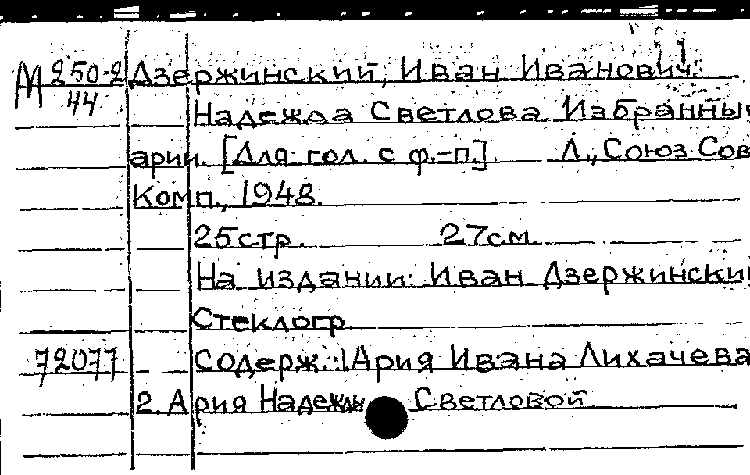 М 250-2 Дзержинский, Иван Иванович.
44 Надежда Светлова Избранны
арии. [Для гол. с ф.-п.]. Л., Союз Сов
Комп., 1948.
25 стр. 27 см.
На издании: Иван Дзержински
Стеклогр.
72077 Содерж.: 1 Ария Ивана Лихачева
2. Ария Надежды Светловой